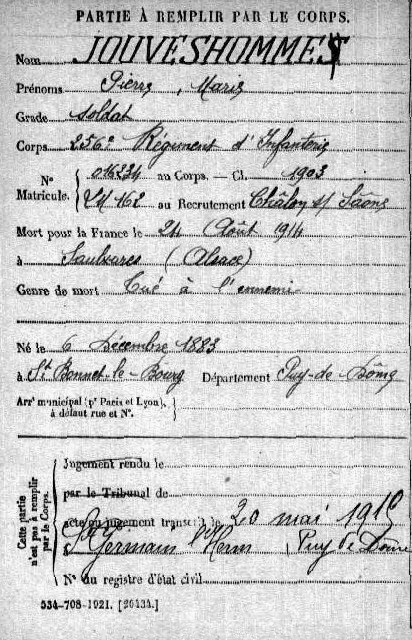 PARTIE À REMPLIR PAR LE CORPS.
Nom JOUVESHOMMES
Prénoms Pierre, Marie
Grade Soldat
Corps 256e Régiment d'Infanterie
N° Matricule. 016234 au Corps. — Cl. 1903
162 au Recrutement Châlon s/ Saône
Mort pour la France le 24 Août 1914
à Saulxures (Alsace)
Genre de mort Tué à l'ennemi
Né le 6 Décembre 1883
à St Bonnet-le-Bourg Département Puy-de-Dôme
Arrt municipal (pr Paris et Lyon), à défaut rue et N°.
Cette partie n'est pas à remplir par le Corps.
Jugement rendu le
par le Tribunal de
acte ou jugement transcrit le 20 mai 1916
St Germain l'Herm, Puy de Dome
N° du registre d'état civil
534-708-1921. [26434.]